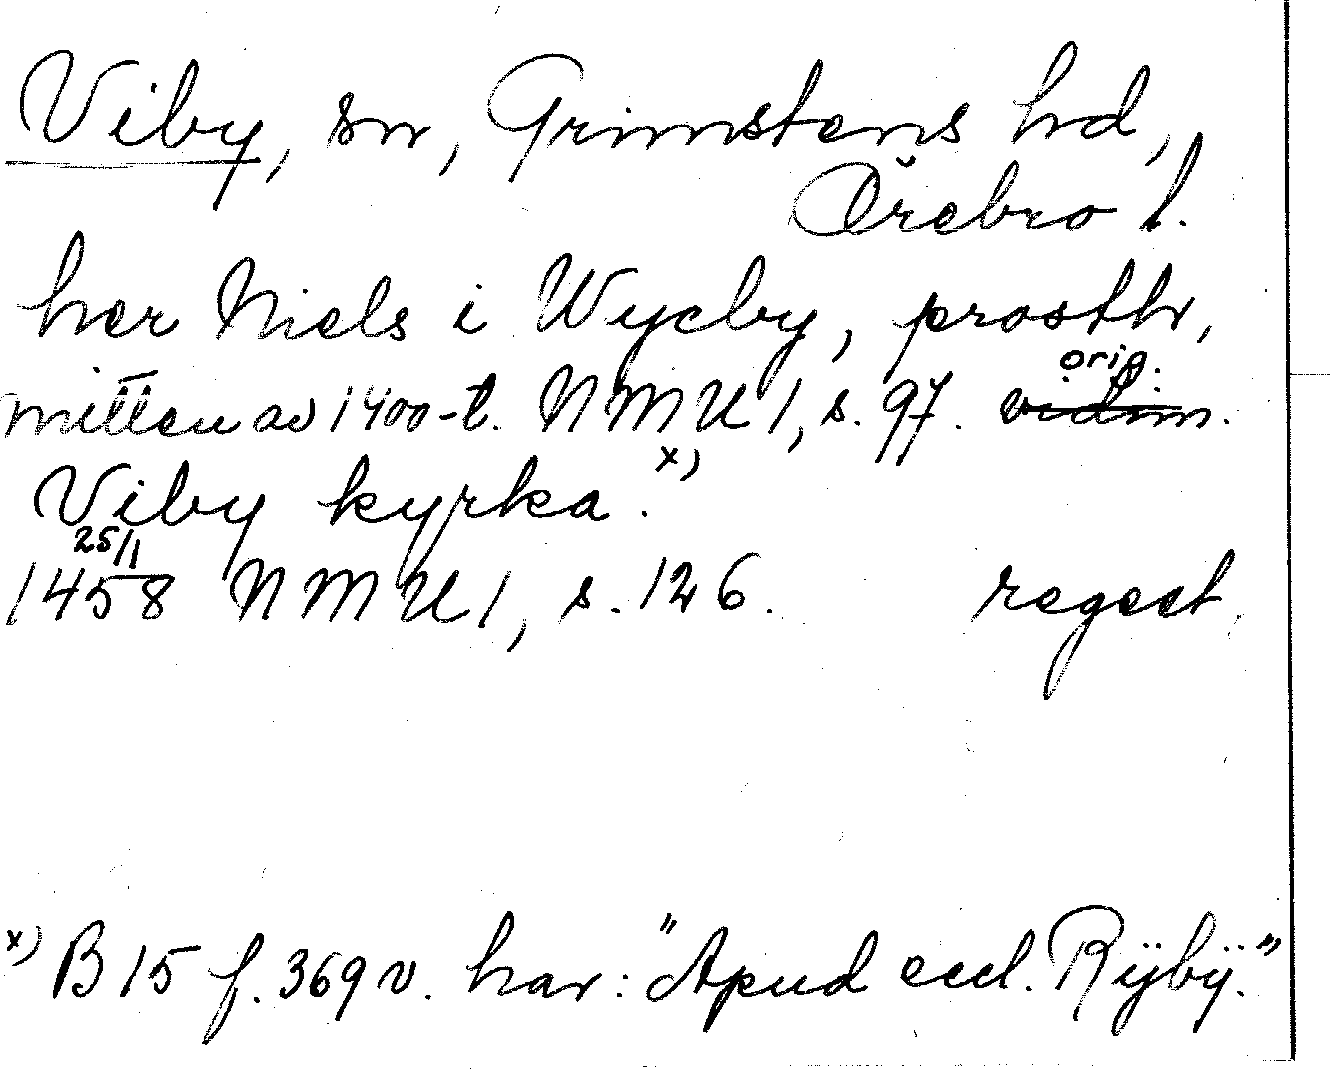 Viby, sn, Grimstens hd,
Örebro l.
her Niels i Wyeby, prosthr,
orig.
mitten av 1400-t. NMU 1, s. 97. vidim.
Viby kyrka. x)
25/1
1458 NMU 1, s. 126. regest.
x) B 15 f. 369 v. har: "Apud eccl. Rÿbÿ."